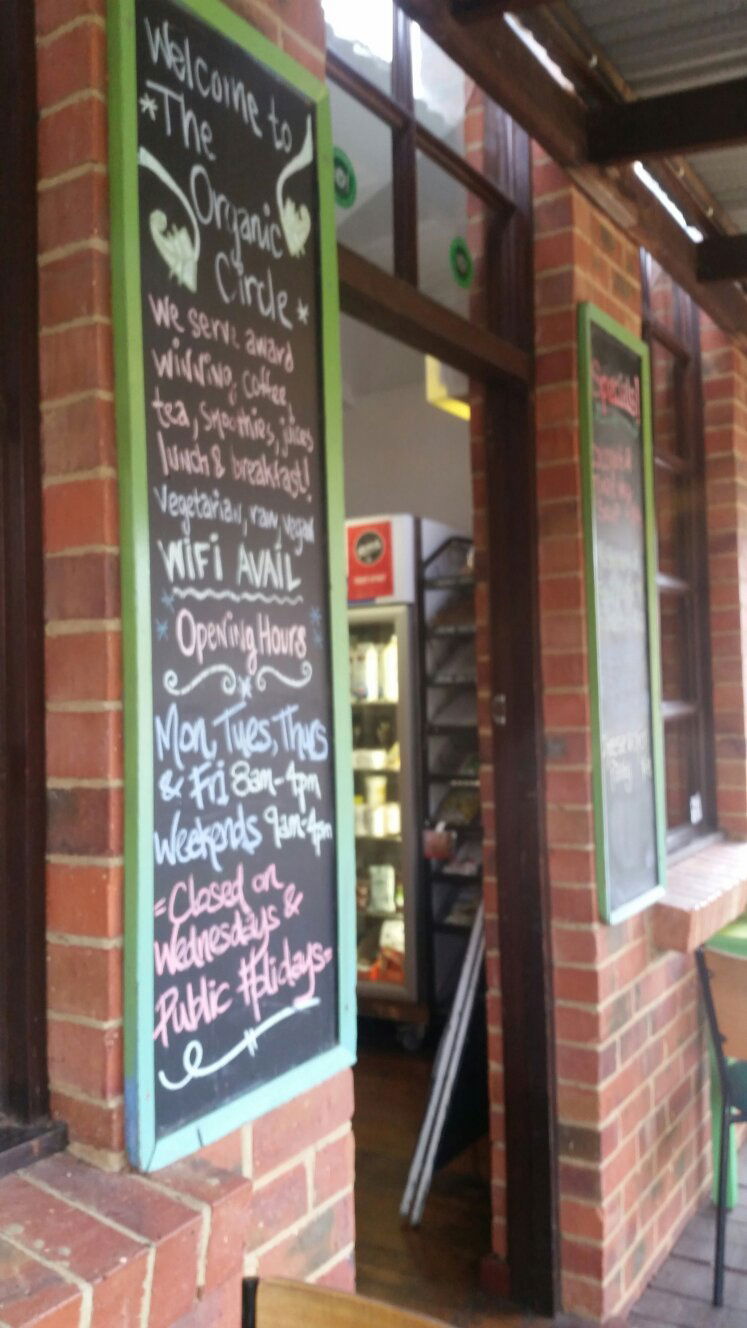 Welcome to
*The
Organic
Circle *
We serve award
winning, coffee,
tea, smoothies, juices
lunch & breakfast!
Vegetarian, raw, vegan
WIFI AVAIL
Opening Hours
Mon, Tues, Thurs
& Fri 8am-4pm
Weekends 9am-4pm
=Closed on
Wednesdays &
Public Holidays=
Specials!